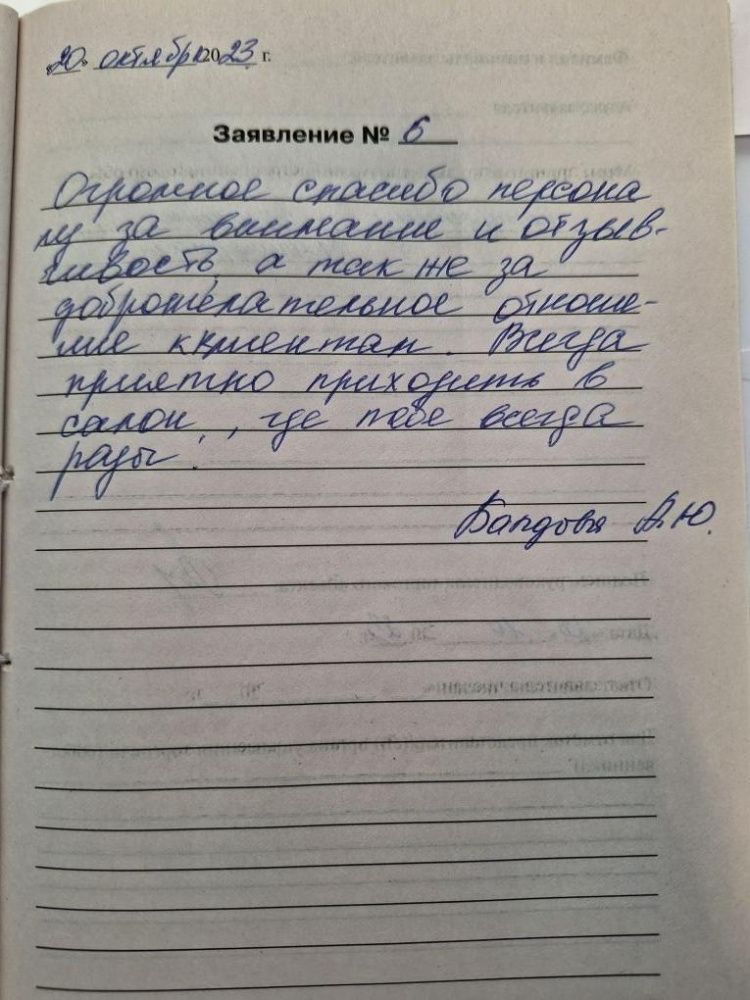 «20» октября 2023 г.
Заявление № 6
Огромное спасибо персона
лу за внимание и отзыв-
чивость, а так же за
доброжелательное отноше-
ние к клиентам. Всегда
приятно приходить в
салон, где тебе всегда
рады!
А.Ю.